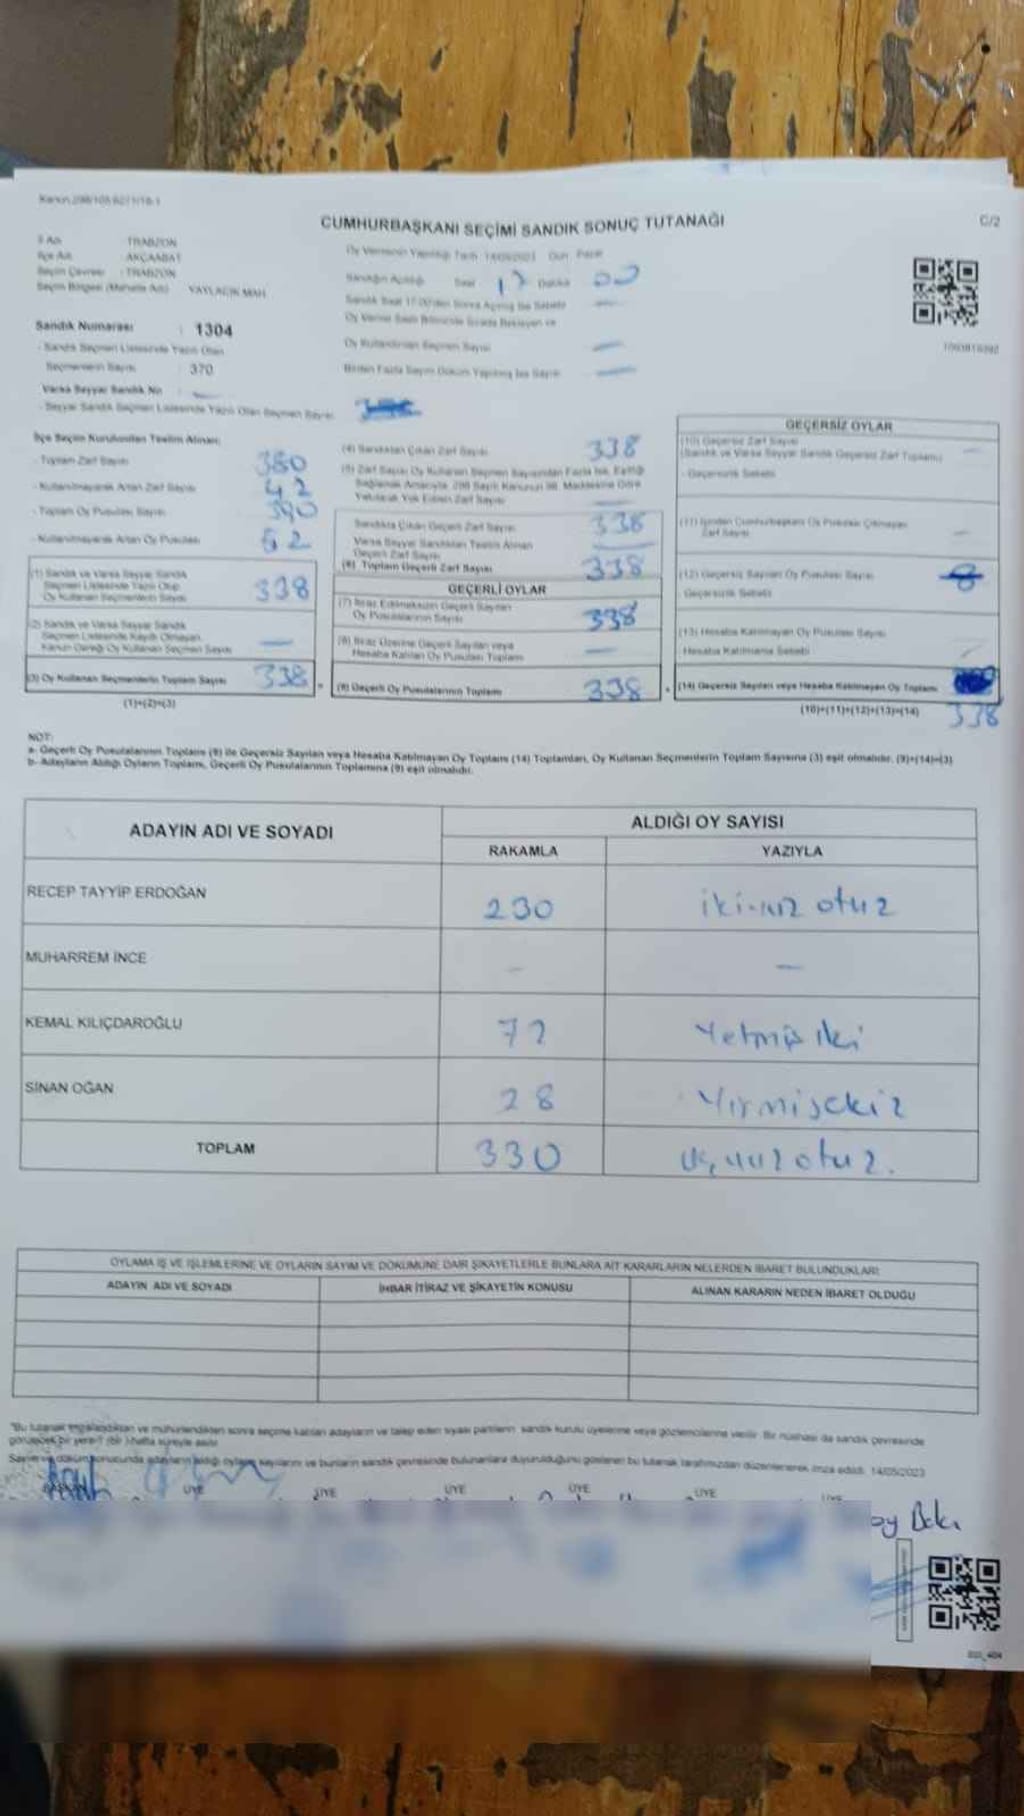 Kanun:298/105,6271/18-1
CUMHURBAŞKANI SEÇİMİ SANDIK SONUÇ TUTANAĞI
C/2
İl Adı TRABZON
İlçe Adı AKÇAABAT
Seçim Çevresi : TRABZON
Seçim Bölgesi (Mahalle Adı) YAYLACIK MAH.
Sandık Numarası : 1304
- Sandık Seçmen Listesinde Yazılı Olan
Seçmenlerin Sayısı : 370
Varsa Seyyar Sandık No
- Seyyar Sandık Seçmen Listesinde Yazılı Olan Seçmen Sayısı
Oy Vermenin Yapıldığı Tarih 14/05/2023 Gün Pazar
Sandığın Açıldığı Saat 17 Dakika 00
Sandık Saat 17:00'den Sonra Açılmış İse Sebebi —
Oy Verme Saati Bitiminde Sırada Bekleyen ve
Oy Kullandırılan Seçmen Sayısı —
Birden Fazla Sayım Döküm Yapılmış İse Sayısı —
İlçe Seçim Kurulundan Teslim Alınan;
- Toplam Zarf Sayısı 380
- Kullanılmayarak Artan Zarf Sayısı 42
- Toplam Oy Pusulası Sayısı 390
- Kullanılmayarak Artan Oy Pusulası 52
(1) Sandık ve Varsa Seyyar Sandık
Seçmen Listesinde Yazılı Olup
Oy Kullanan Seçmenlerin Sayısı 338
(2) Sandık ve Varsa Seyyar Sandık
Seçmen Listesinde Kayıtlı Olmayan
Kanun Gereği Oy Kullanan Seçmen Sayısı —
(3) Oy Kullanan Seçmenlerin Toplam Sayısı 338
(1)+(2)=(3)
(4) Sandıktan Çıkan Zarf Sayısı 338
(5) Zarf Sayısı Oy Kullanan Seçmen Sayısından Fazla İse, Eşitliği
Sağlamak Amacıyla, 298 Sayılı Kanunun 98. Maddesine Göre
Yakılarak Yok Edilen Zarf Sayısı —
Sandıkta Çıkan Geçerli Zarf Sayısı 338
Varsa Seyyar Sandıktan Teslim Alınan
Geçerli Zarf Sayısı —
(6) Toplam Geçerli Zarf Sayısı 338
GEÇERLİ OYLAR
(7) İtiraz Edilmeksizin Geçerli Sayılan
Oy Pusulalarının Sayısı 338
(8) İtiraz Üzerine Geçerli Sayılan veya
Hesaba Katılan Oy Pusulası Toplamı —
(9) Geçerli Oy Pusulalarının Toplamı 338
GEÇERSİZ OYLAR
(10) Geçersiz Zarf Sayısı
(Sandık ve Varsa Seyyar Sandık Geçersiz Zarf Toplamı) —
- Geçersizlik Sebebi
(11) İçinden Cumhurbaşkanı Oy Pusulası Çıkmayan
Zarf Sayısı —
(12) Geçersiz Sayılan Oy Pusulası Sayısı
Geçersizlik Sebebi
(13) Hesaba Katılmayan Oy Pusulası Sayısı
- Hesaba Katılmama Sebebi
(14) Geçersiz Sayılan veya Hesaba Katılmayan Oy Toplamı
(10)+(11)+(12)+(13)=(14) 338
NOT:
a- Geçerli Oy Pusulalarının Toplamı (9) ile Geçersiz Sayılan veya Hesaba Katılmayan Oy Toplamı (14) Toplamları, Oy Kullanan Seçmenlerin Toplam Sayısına (3) eşit olmalıdır. (9)+(14)=(3)
b- Adayların Aldığı Oyların Toplamı, Geçerli Oy Pusulalarının Toplamına (9) eşit olmalıdır.
ADAYIN ADI VE SOYADI
ALDIĞI OY SAYISI
RAKAMLA YAZIYLA
RECEP TAYYİP ERDOĞAN 230 ikiyüz otuz
MUHARREM İNCE — —
KEMAL KILIÇDAROĞLU 72 Yetmiş iki
SİNAN OĞAN 28 Yirmisekiz
TOPLAM 330 üçyüz otuz.
OYLAMA İŞ VE İŞLEMLERİNE VE OYLARIN SAYIM VE DÖKÜMÜNE DAİR ŞİKAYETLERLE BUNLARA AİT KARARLARIN NELERDEN İBARET BULUNDUKLARI
ADAYIN ADI VE SOYADI
İHBAR İTİRAZ VE ŞİKAYETİN KONUSU
ALINAN KARARIN NEDEN İBARET OLDUĞU
"Bu tutanak imzalandıktan ve mühürlendikten sonra seçime katılan adayların ve talep eden siyasi partilerin sandık kurulu üyelerine veya gözlemcilerine verilir. Bir nüshası da sandık çevresinde
görülecek bir yere 7 (bir ) hafta süreyle asılır.
Sayım ve döküm sonucunda adayların aldığı oyların sayılarını ve bunların sandık çevresinde bulunanlara duyurulduğunu gösteren bu tutanak tarafımızdan düzenlenerek imza edildi. 14/05/2023
BAŞKAN ÜYE ÜYE ÜYE ÜYE ÜYE ÜYE